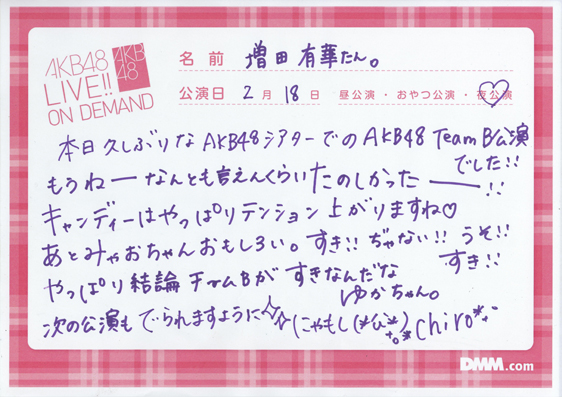 AKB48
LIVE!!
ON DEMAND
AKB
48
名前 増田有華たん。
公演日 2月 18日 昼公演・おやつ公演・夜公演
本日久しぶりなAKB48シアターでのAKB48 TeamB公演
でした!!
もうねーなんとも言えんくらいたのしかったー!!
キャンディーはやっぱりテンション上がりますね♡
あとみゃおちゃんおもしろい。すき!! ぢゃない!! うそ!!
すき!!
やっぱり結論チームBがすきなんだな
ゆかちゃん。
次の公演もでられますように☆☆(こやもし(*'ω'*)chiro*
DMM.com